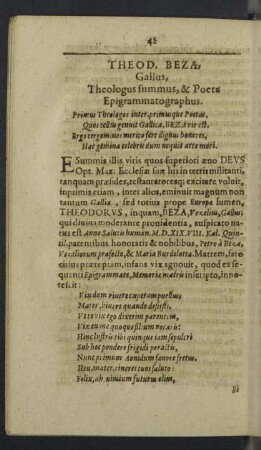 42
THEOD. BEZA,
Gallus,
Theologus summus, & Poeta
Epigrammatographus.
Primus Theologos inter, primusque Poetas,
Quos tellus genuit Gallica, BEZA vir est.
Ergo tergeminos merito fert dignus honores,
Hac gemina celebris dum nequit arte mori.
E Summis illis viris quos superiori ævo DEVS
Opt. Max. Ecclesiæ suæ his in terris militanti,
tanquam præsides, restauratoresq; excitare voluit,
supremis etiam, inter alios, eminuit magnum non
tantum Galliæ, sed totius prope Europæ lumen,
THEODORVS, inquam, BEZA, Vezelius, Gallus;
qui divina moderante providentia, auspicato na-
tus est Anno Salutis human. M.D.XIX. VIII. Kal. Quin-
til. patentibus honoratis & nobilibus, Petro à Beza,
Vezeliorum præfecto, & Maria Burdelotia. Matrem, fato
citius præreptam, infans vix agnouit, quod ex se-
quenti Epigrammate, Memoriæ matris inscripto, inno-
tescit:
Vix dum vivere cœperam puellus,
Mater, vivere quando desiisti.
Vt te vix ego dixerim parentem,
Vix eu me quoque filium vocaris:
Hinc lustris tibi quinque iam sepulcri
Sub hoc pondere frigidi peractis,
Nunc primum Aonidum favore fretus,
Heu, mater, cineres tuos saluto:
Felix, ah nimium futurus olim,
Si